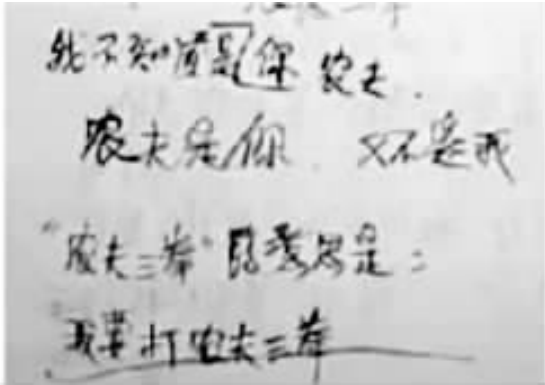 我不知道是你 农夫.
农夫是你. 又不是我
"农夫三拳"的意思是:
我要打农夫三拳